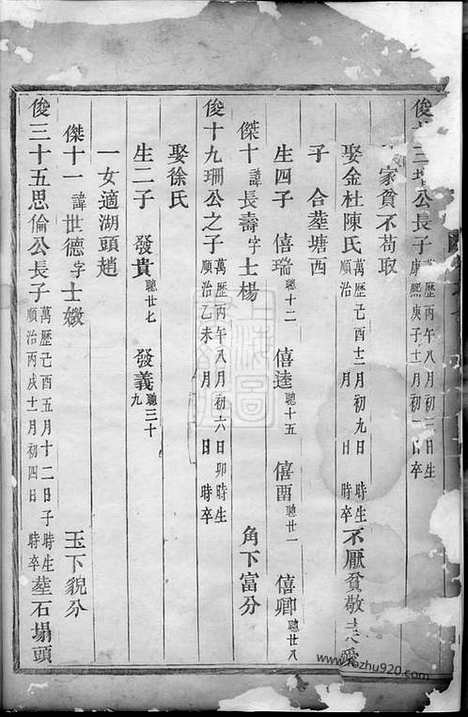 俊十三 公長子 萬歷丙午八月初 日生 康熙庚子十一月初
家貧不苟取
娶金杜陳氏 萬歷己酉十二月初九日 月 日 時生 時卒 不厭貧敬 愛
子 合塟塘西
生四子 僖瑞聰十二 僖逵聰十五 僖 聰廿一 僖卿聰廿八
傑十諱長壽字士楊 角下富分
俊十九珊公之子 萬歷丙午八月初六日卯時生 順治乙未 月 日 時卒
娶徐氏
生二子 發貴聰廿七 發義聰三十九
一女適湖頭趙
傑十一諱世德字士 玉下貌分
俊三十五思倫公長子 萬歷己酉五月十二日子時生 順治丙戌十一月初四日 時卒 塟石塌頭
www.cozhu920.com